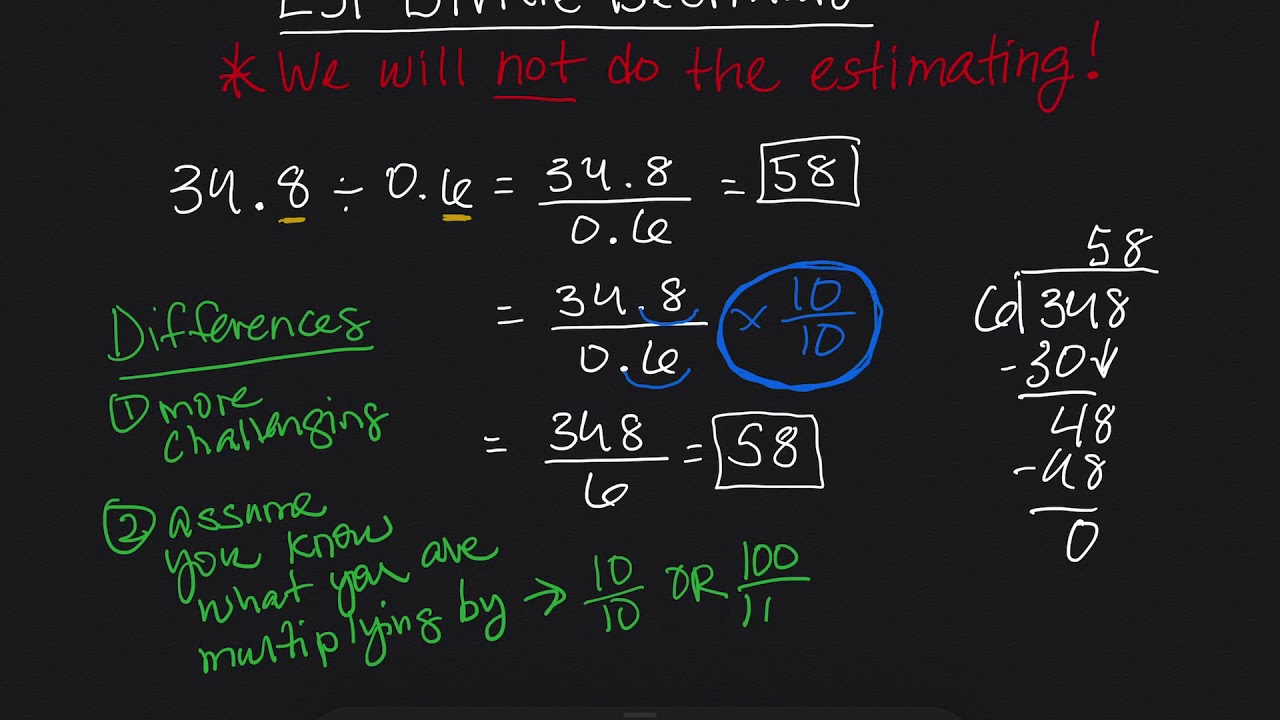 Divide Decimals
*We will not do the estimating!
34.8 ÷ 0.6 = 34.8/0.6 = 58
= 34.8/0.6 × 10/10
= 348/6 = 58
58
6 348
-30↓
48
-48
0
Differences
① more
challenging
② assume
you know
what you are
multiplying by → 10/10 OR 100/11